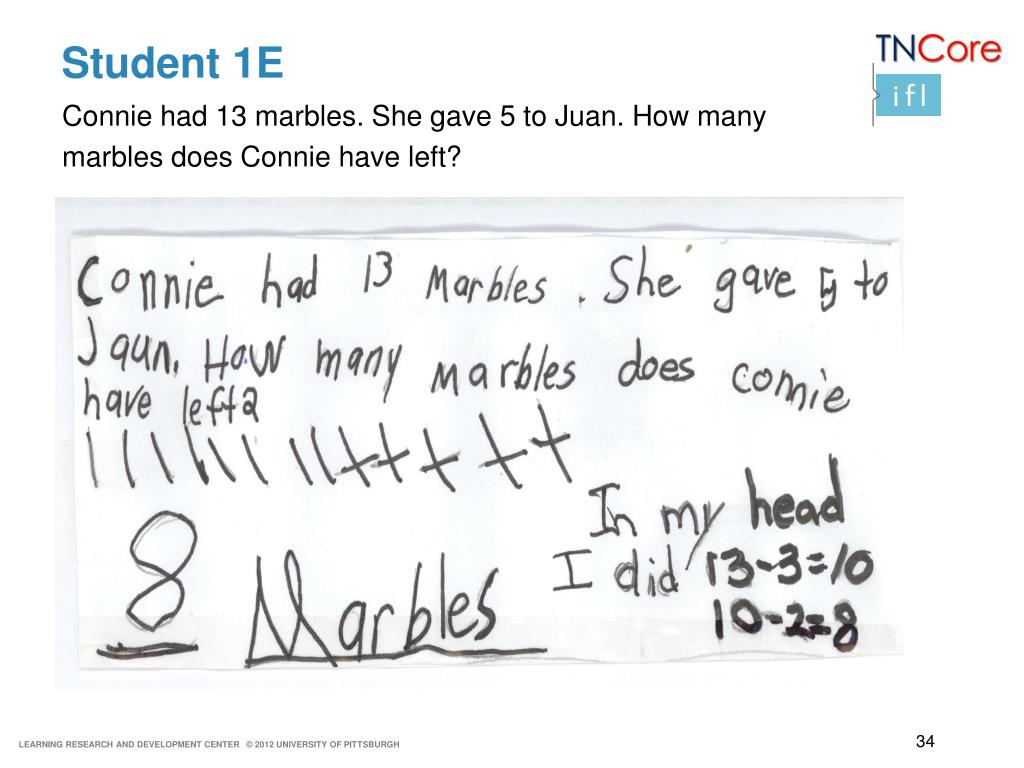 Student 1E
TNCore
ifl
Connie had 13 marbles. She gave 5 to Juan. How many
marbles does Connie have left?
Connie had 13 Marbles. She gave 5 to
Jaun. How many marbles does connie
have left?
8 Marbles
In my head
I did 13-3=10
10-2=8
LEARNING RESEARCH AND DEVELOPMENT CENTER © 2012 UNIVERSITY OF PITTSBURGH
34